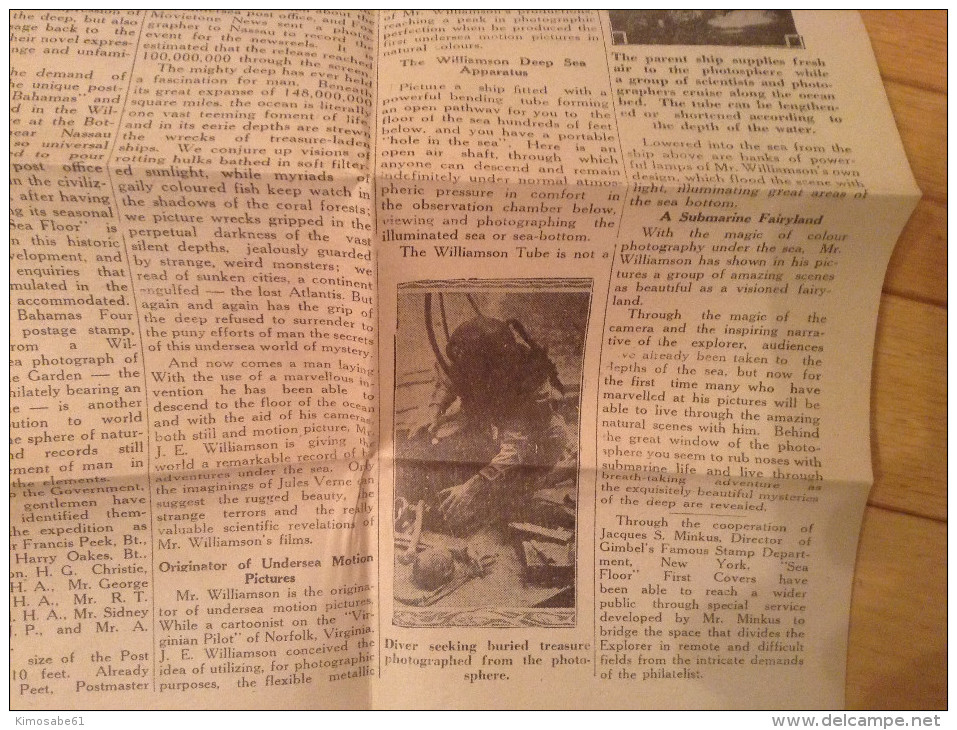 the deep, but also
sage back to the
heir novel expres-
nge and unfami-
he demand of
e unique post-
Bahamas" and
d in the Wil-
e at the Bot-
near Nassau
so universal
ed to pour
post office
n the civiliz-
, after having
g its seasonal
Sea Floor" is
n this historic
velopment, and
enquiries that
mulated in the
accommodated.
Bahamas Four
postage stamp,
rom a Wil-
ea photograph of
e Garden — the
hilately bearing an
e — is another
ution to world
e sphere of natur-
nd records still
ment of man in
the elements.
o the Government,
gentlemen have
identified them-
the expedition as
r Francis Peek, Bt.,
Harry Oakes, Bt.,
on. H. G. Christie,
H. A., Mr. George
H. A., Mr. R. T.
. H. A., Mr. Sidney
. P., and Mr. A.
size of the Post
10 feet. Already
Peet, Postmaster
undersea post office, and Fox
Movietone News sent a photo-
grapher to Nassau to record the
event for the newsreels. It is
estimated that the release reached
100,000,000 through the screen.
The mighty deep has ever held
a fascination for man. Beneath
its great expanse of 148,000,000
square miles, the ocean is literally
one vast teeming foment of life,
and in its eerie depths are strewn
the wrecks of treasure-laden
ships. We conjure up visions of
rotting hulks bathed in soft filter-
ed sunlight, while myriads of
gaily coloured fish keep watch in
the shadows of the coral forests;
we picture wrecks gripped in the
perpetual darkness of the vast
silent depths, jealously guarded
by strange, weird monsters; we
read of sunken cities, a continent
engulfed — the lost Atlantis. But
again and again has the grip of
the deep refused to surrender to
the puny efforts of man the secrets
of this undersea world of mystery.
And now comes a man laying
With the use of a marvellous in-
vention he has been able to
descend to the floor of the ocean
and with the aid of his cameras,
both still and motion picture, Mr.
J. E. Williamson is giving the
world a remarkable record of his
adventures under the sea. Only
the imaginings of Jules Verne can
suggest the rugged beauty, the
strange terrors and the really
valuable scientific revelations of
Mr. Williamson's films.
Originator of Undersea Motion
Pictures
Mr. Williamson is the origina-
tor of undersea motion pictures.
While a cartoonist on the "Vir-
ginian Pilot" of Norfolk, Virginia,
J. E. Williamson conceived the
idea of utilizing, for photographic
purposes, the flexible metallic
of Mr. Williamson's productions,
reaching a peak in photographic
perfection when he produced the
first undersea motion pictures in
natural colours.
The Williamson Deep Sea
Apparatus
Picture a ship fitted with a
powerful bending tube forming
an open pathway for you to the
floor of the sea hundreds of feet
below, and you have a portable
"hole in the sea". Here is an
open air shaft, through which
anyone can descend and remain
indefinitely under normal atmos-
pheric pressure in comfort in
the observation chamber below,
viewing and photographing the
illuminated sea or sea-bottom.
The Williamson Tube is not a
Diver seeking buried treasure
photographed from the photo-
sphere.
The parent ship supplies fresh
air to the photosphere while
a group of scientists and photo-
graphers cruise along the ocean
bed. The tube can be lengthen-
ed or shortened according to
the depth of the water.
Lowered into the sea from the
ship above are banks of power-
ful lamps of Mr. Williamson's own
design, which flood the scene with
light, illuminating great areas of
the sea bottom.
A Submarine Fairyland
With the magic of colour
photography under the sea, Mr.
Williamson has shown in his pic-
tures a group of amazing scenes
as beautiful as a visioned fairy-
land.
Through the magic of the
camera and the inspiring narra-
tive of the explorer, audiences
ve already been taken to the
depths of the sea, but now for
the first time many who have
marvelled at his pictures will be
able to live through the amazing
natural scenes with him. Behind
the great window of the photo-
sphere you seem to rub noses with
submarine life and live through
breath-taking adventure as
the exquisitely beautiful mysteries
of the deep are revealed.
Through the cooperation of
Jacques S. Minkus, Director of
Gimbel's Famous Stamp Depart-
ment, New York, "Sea
Floor" First Covers have
been able to reach a wider
public through special service
developed by Mr. Minkus to
bridge the space that divides the
Explorer in remote and difficult
fields from the intricate demands
of the philatelist.
Kimosabe61
delcampe.net